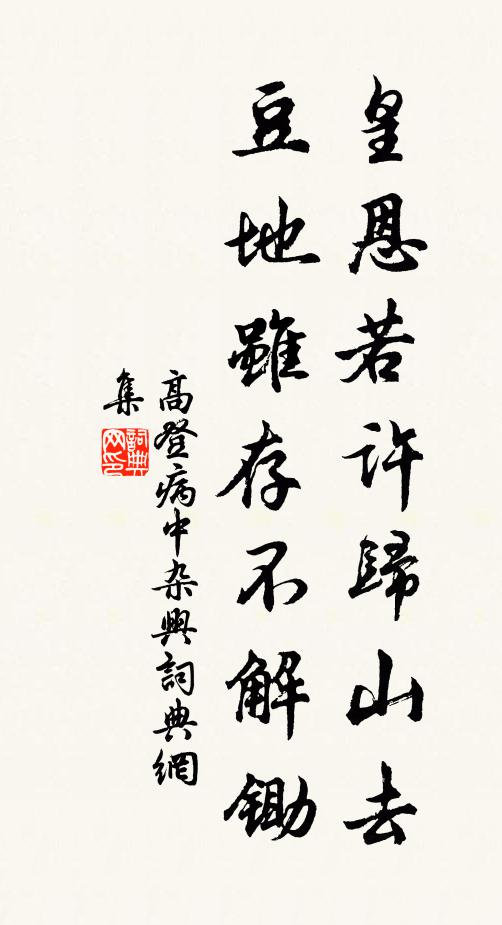 皇恩若許歸山去
豆地雖存不解鋤
高登病中杂興詞典網
集
詞典
网印